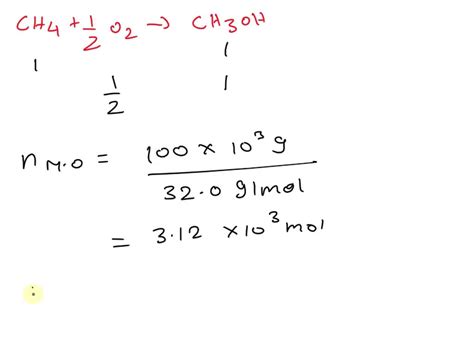 CH4 + 1/2 O2 → CH3OH
1 1
1/2 1
nM.O = 100 × 10³ g / 32.0 g/mol
= 3.12 × 10³ mol